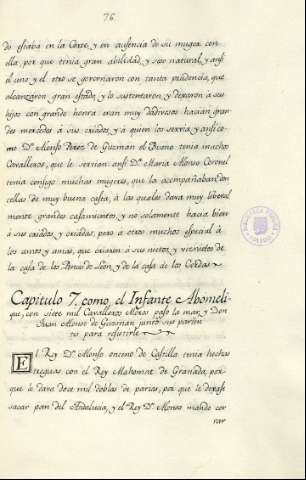 76
do estaba en la Corte, y en ausencia de su muger con
ella, por que tenia gran abilidad, y seso natural, y ansi
el uno y el otro se governaron con tanta prudencia, que
alcanzaron gran estado, y lo sustentaron, y dexaron à sus
hijos con grande honra eran muy dadivosos hacian gran
des mercedes à sus criados, y à quien los servia, y ansi co-
mo Dn. Alonso Perez de Guzman el Bueno tenia muchos
Cavalleros, que le servian: ansi Dª. Maria Alonso Coronel
tenia consigo muchas mugeres, que la acompañaban don
cellas de muy buena casta, à las quales dava muy liberal
mente grandes casamientos, y no solamente hacia bien
à sus criados, y criadas, pero à otros muchos especial à
los amos y amas, que criaron à sus nietos, y viznietos de
la casa de los Ponce de Leon, y de la casa de los Cerdas
Capitulo 7. como, el Infante Abomeli
que, con siete mil Cavalleros Moros paso la mar, y Don
Juan Alonso de Guzman, juntó sus parien
tes para resistirle
El Rey Dn. Alonso onceno de Castilla tenia hechas
treguas con el Rey Mahomat de Granada, por
que le dava doce mil doblas de parias, por que le dexase
sacar pan del Andalucia, y el Rey Dn. Alonso mandó cer
rar